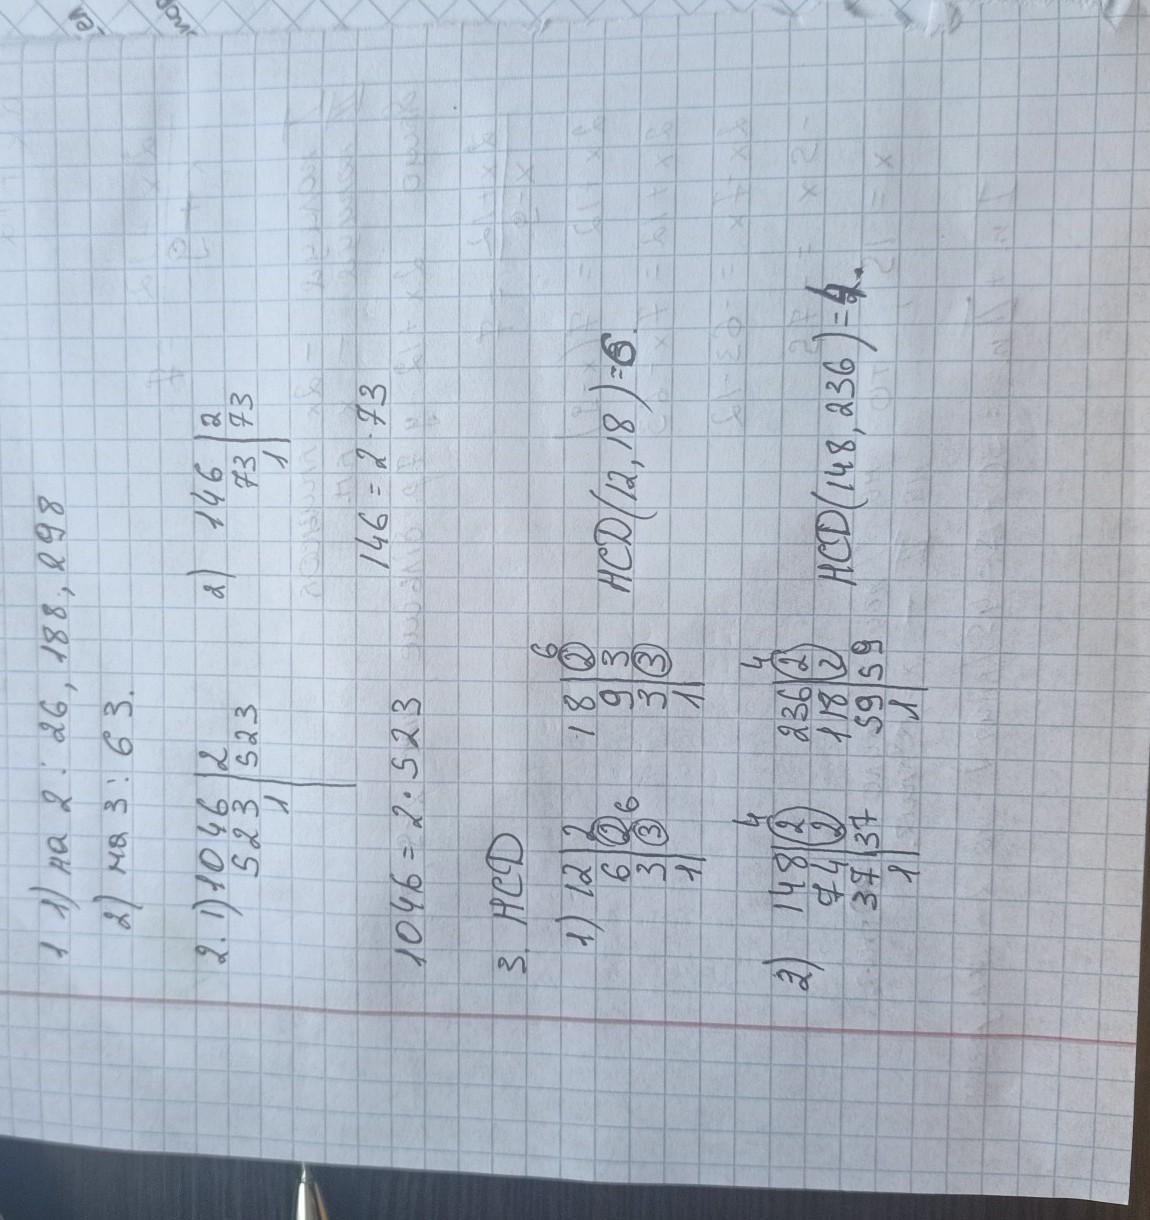 1 1) на 2: 26, 188, 298
2) на 3: 63.
2. 1) 1046 | 2 2) 146 | 2
523 | 523 73 | 73
1 | 1 |
1046 = 2 · 523 146 = 2 · 73
3. НСД
1) 12 | 2 18 | 2 6
6 | 2 6 9 | 3 НСД(12, 18) = 6.
3 | 3 3 | 3
1 | 1 |
4 4
2) 148 | 2 236 | 2
74 | 2 118 | 2 НСД(148, 236) = 4.
37 | 37 59 | 59
1 | 1 |